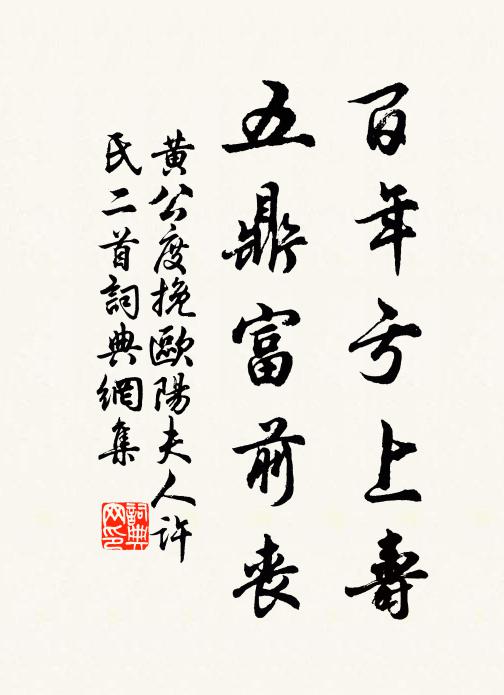 百年亏上壽
五鼎富前喪
黄公度挽歐陽夫人許
氏二首詞典網集
詞典
网印